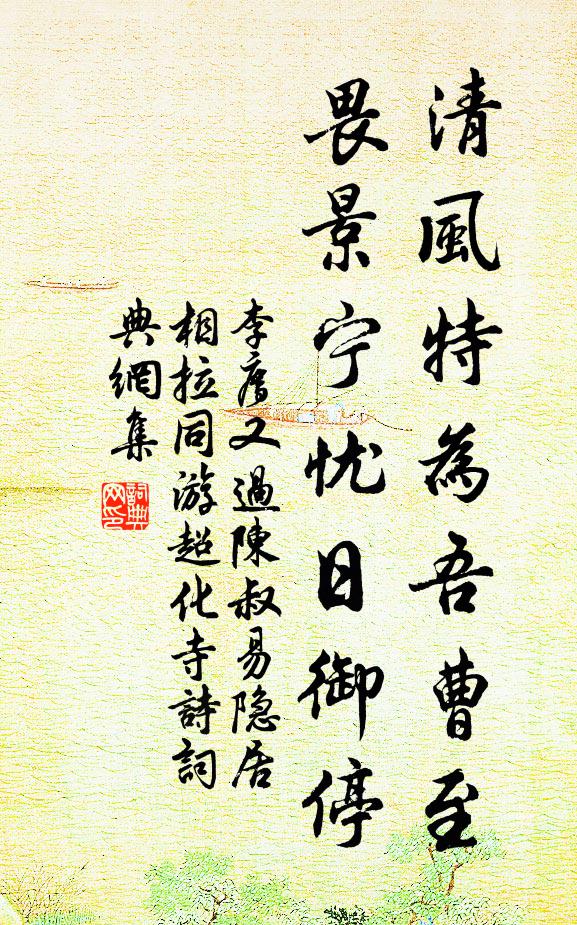 清風特為吾曹至
畏景宁忧日御停
李廌又過陳叔易隐居
相拉同游超化寺詩詞
典網集
詞典
网印